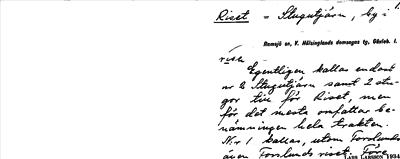 Riset = Stugutjärn, by i
Ramsjö sn, V. Hälsinglands domsagas tg, Gävleb. l.
rise
Egentligen kallas endast
nr 2 Stugutjärn samt 2 stu-
gor till för Riset, men
för det mesta omfattar be-
nämningen hela trakten.
Nr 1 kallas, utom Forslunds
även Forslunds riset. Före
LARS LARSSON 1934